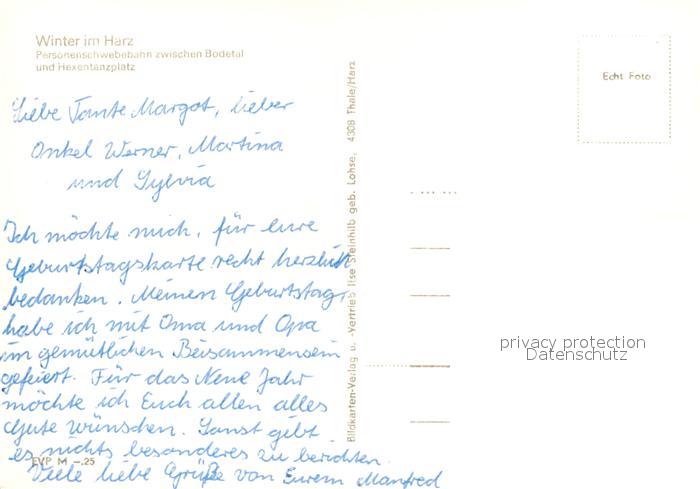 Winter im Harz
Personenschwebebahn zwischen Bodetal
und Hexentanzplatz
Liebe Tante Margot, lieber
Onkel Werner, Martina
und Sylvia
Ich möchte mich, für eure
Geburtstagskarte recht herzlich
bedanken. Meinen Geburtstag,
habe ich mit Oma und Opa
im gemütlichen Beisammensein
gefeiert. Für das Neue Jahr
möchte ich Euch allen alles
Gute wünschen. Sonst gibt
es nichts besonderes zu berichten.
Viele liebe Grüße von Eurem Manfred
EVP M –.25
Bildkarten-Verlag u. -Vertrieb Ilse Steinhilb geb. Lohse, 4308 Thale/Harz
Echt Foto
privacy protection
Datenschutz